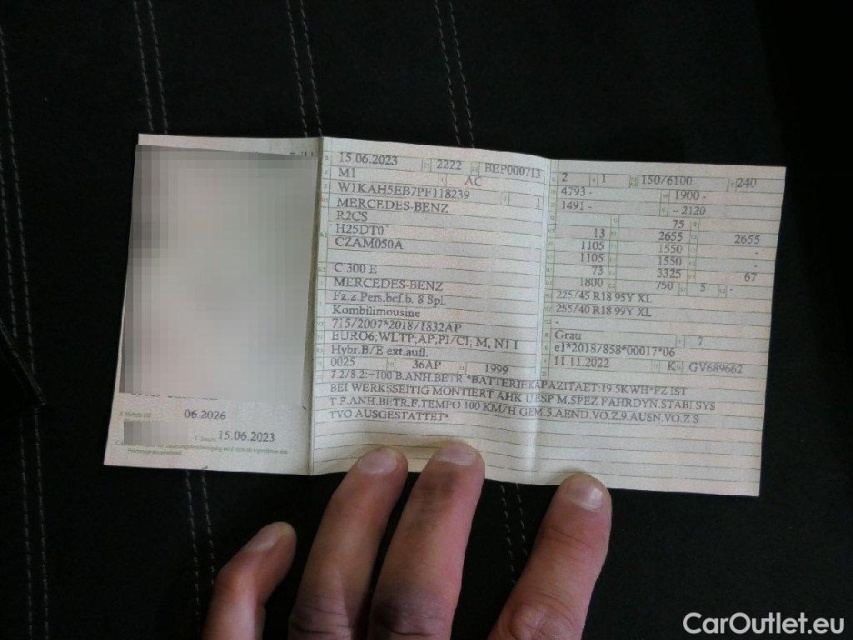 15.06.2023 2222 BEP000713
M1 AC
W1KAH5EB7PF118239
MERCEDES-BENZ
R2CS
H25DT0
CZAM050A
C 300 E
MERCEDES-BENZ
Fz.z.Pers.bef.b. 8 Spl.
Kombilimousine
715/2007*2018/1832AP
EURO6,WLTP,AP,PI/CI; M, N1 I
Hybr.B/E ext.aufl.
0025 36AP 1999
7.2/8.2:-100 B.ANH.BETR.*BATTERIEKAPAZITAET:19.5KWH*FZ IST
BEI WERKSSEITIG MONTIERT AHK UBSP M.SPEZ FAHRDYN.STABI SYS
T.F.ANH.BETR.F.TEMPO 100 KM/H GEM.3.AEND.VO.Z.9.AUSN.VO.Z S
TVO AUSGESTATTET*
2 1 150/6100 240
4793 - 1900 -
1491 - - 2120
75
13 2655 2655
1105 1550 -
1105 1550 -
73 3325 67
1800 750 5 -
225/45 R18 95Y XL
255/40 R18 99Y XL
-
Grau 7
e1*2018/858*00017*06
11.11.2022 K GV689662
06.2026
15.06.2023
CarOutlet.eu